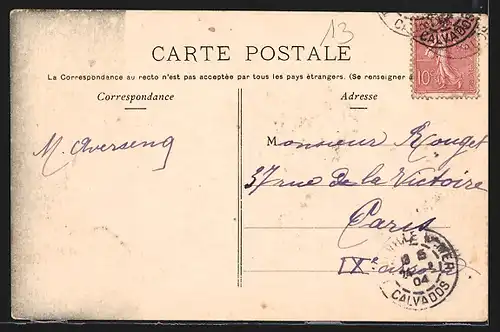 13
CALVADOS
10
CARTE POSTALE
La Correspondance au recto n'est pas acceptée par tous les pays étrangers. (Se renseigner à
Correspondance
Adresse
M. Averseng
Monsieur Rouget
37 rue de la Victoire
Paris
IXe
VILLE MER
04
CALVADOS